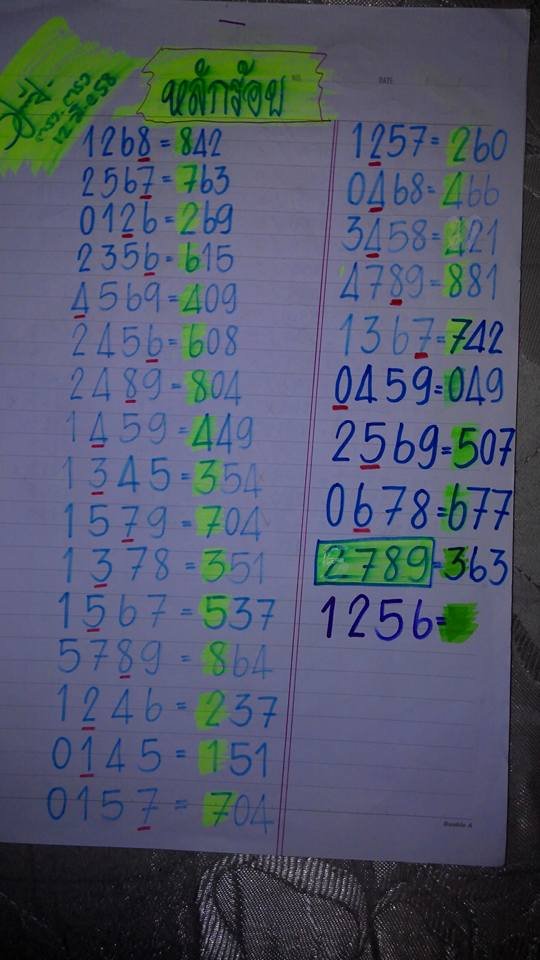 หลักร้อย
NO.
DATE
1268=842
2567=763
0126=269
2356=615
4569=409
2456=608
2489=804
1459=449
1345=354
1579=704
1378=351
1567=537
5789=864
1246=237
0145=151
0157=704
1257=260
0468=466
3458=421
4789=881
1367=742
0459=049
2569=507
0678=677
2789=363
1256=
Double A